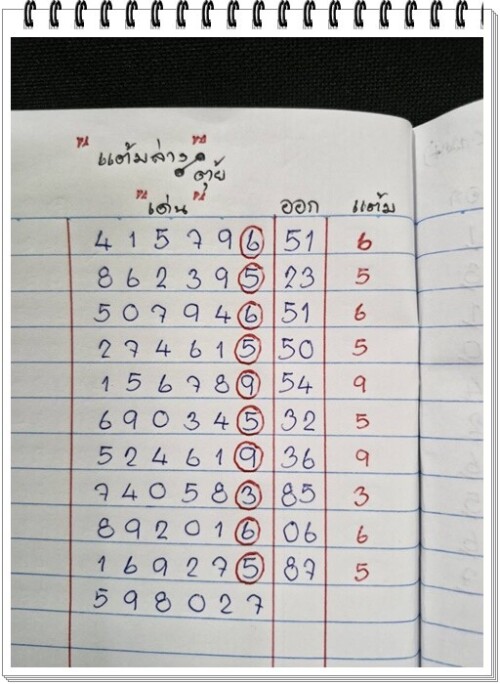 แต้มล่าง
ตุ้ย
เด่น ออก แต้ม
4 1 5 7 9 6 51 6
8 6 2 3 9 5 23 5
5 0 7 9 4 6 51 6
2 7 4 6 1 5 50 5
1 5 6 7 8 9 54 9
6 9 0 3 4 5 32 5
5 2 4 6 1 9 36 9
7 4 0 5 8 3 85 3
8 9 2 0 1 6 06 6
1 6 9 2 7 5 87 5
5 9 8 0 2 7